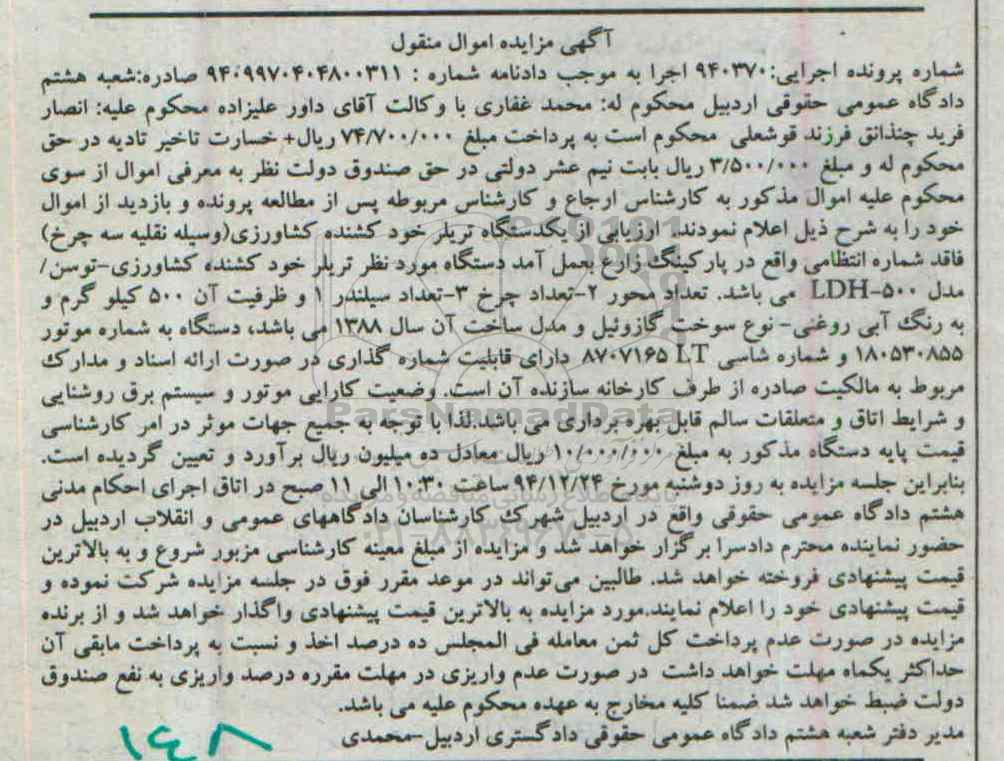 آگهی مزایده اموال منقول
شماره پرونده اجرایی:۹۴۰۳۷۰ اجرا به موجب دادنامه شماره : ۹۴۰۹۹۷۰۴۰۴۸۰۰۳۱۱ صادره:شعبه هشتم
دادگاه عمومی حقوقی اردبیل محکوم له: محمد غفاری با وکالت آقای داور علیزاده محکوم علیه: انصار
فرید چنذانق فرزند قوشعلی محکوم است به پرداخت مبلغ ۷۴/۷۰۰/۰۰۰ ریال+ خسارت تاخیر تادیه در حق
محکوم له و مبلغ ۳/۵۰۰/۰۰۰ ریال بابت نیم عشر دولتی در حق صندوق دولت نظر به معرفی اموال از سوی
محکوم علیه اموال مذکور به کارشناس ارجاع و کارشناس مربوطه پس از مطالعه پرونده و بازدید از اموال
خود را به شرح ذیل اعلام نمودند. ارزیابی از یکدستگاه تریلر خود کشنده کشاورزی(وسیله نقلیه سه چرخ)
فاقد شماره انتظامی واقع در پارکینگ زارع بعمل آمد دستگاه مورد نظر تریلر خود کشنده کشاورزی-توسن/
مدل LDH-۵۰۰ می باشد. تعداد محور ۲-تعداد چرخ ۳-تعداد سیلندر ۱ و ظرفیت آن ۵۰۰ کیلو گرم و
به رنگ آبی روغنی- نوع سوخت گازوئیل و مدل ساخت آن سال ۱۳۸۸ می باشد، دستگاه به شماره موتور
۱۸۰۵۳۰۸۵۵ و شماره شاسی LT ۸۷۰۷۱۶۵ دارای قابلیت شماره گذاری در صورت ارائه اسناد و مدارک
مربوط به مالکیت صادره از طرف کارخانه سازنده آن است. وضعیت کارایی موتور و سیستم برق روشنایی
و شرایط اتاق و متعلقات سالم قابل بهره برداری می باشد.لذا با توجه به جمیع جهات موثر در امر کارشناسی
قیمت پایه دستگاه مذکور به مبلغ ۱۰/۰۰۰/۰۰۰ ریال معادل ده میلیون ریال برآورد و تعیین گردیده است.
بنابراین جلسه مزایده به روز دوشنبه مورخ ۹۴/۱۲/۲۴ ساعت ۱۰:۳۰ الی ۱۱ صبح در اتاق اجرای احکام مدنی
هشتم دادگاه عمومی حقوقی واقع در اردبیل شهرک کارشناسان دادگاههای عمومی و انقلاب اردبیل در
حضور نماینده محترم دادسرا برگزار خواهد شد و مزایده از مبلغ معینه کارشناسی مزبور شروع و به بالاترین
قیمت پیشنهادی فروخته خواهد شد. طالبین می‌تواند در موعد مقرر فوق در جلسه مزایده شرکت نموده و
قیمت پیشنهادی خود را اعلام نمایند.مورد مزایده به بالاترین قیمت پیشنهادی واگذار خواهد شد و از برنده
مزایده در صورت عدم پرداخت کل ثمن معامله فی المجلس ده درصد اخذ و نسبت به پرداخت مابقی آن
حداکثر یکماه مهلت خواهد داشت در صورت عدم واریزی در مهلت مقرره درصد واریزی به نفع صندوق
دولت ضبط خواهد شد ضمنا کلیه مخارج به عهده محکوم علیه می باشد.
مدیر دفتر شعبه هشتم دادگاه عمومی حقوقی دادگستری اردبیل-محمدی
۱۴۸
ParsNamadData